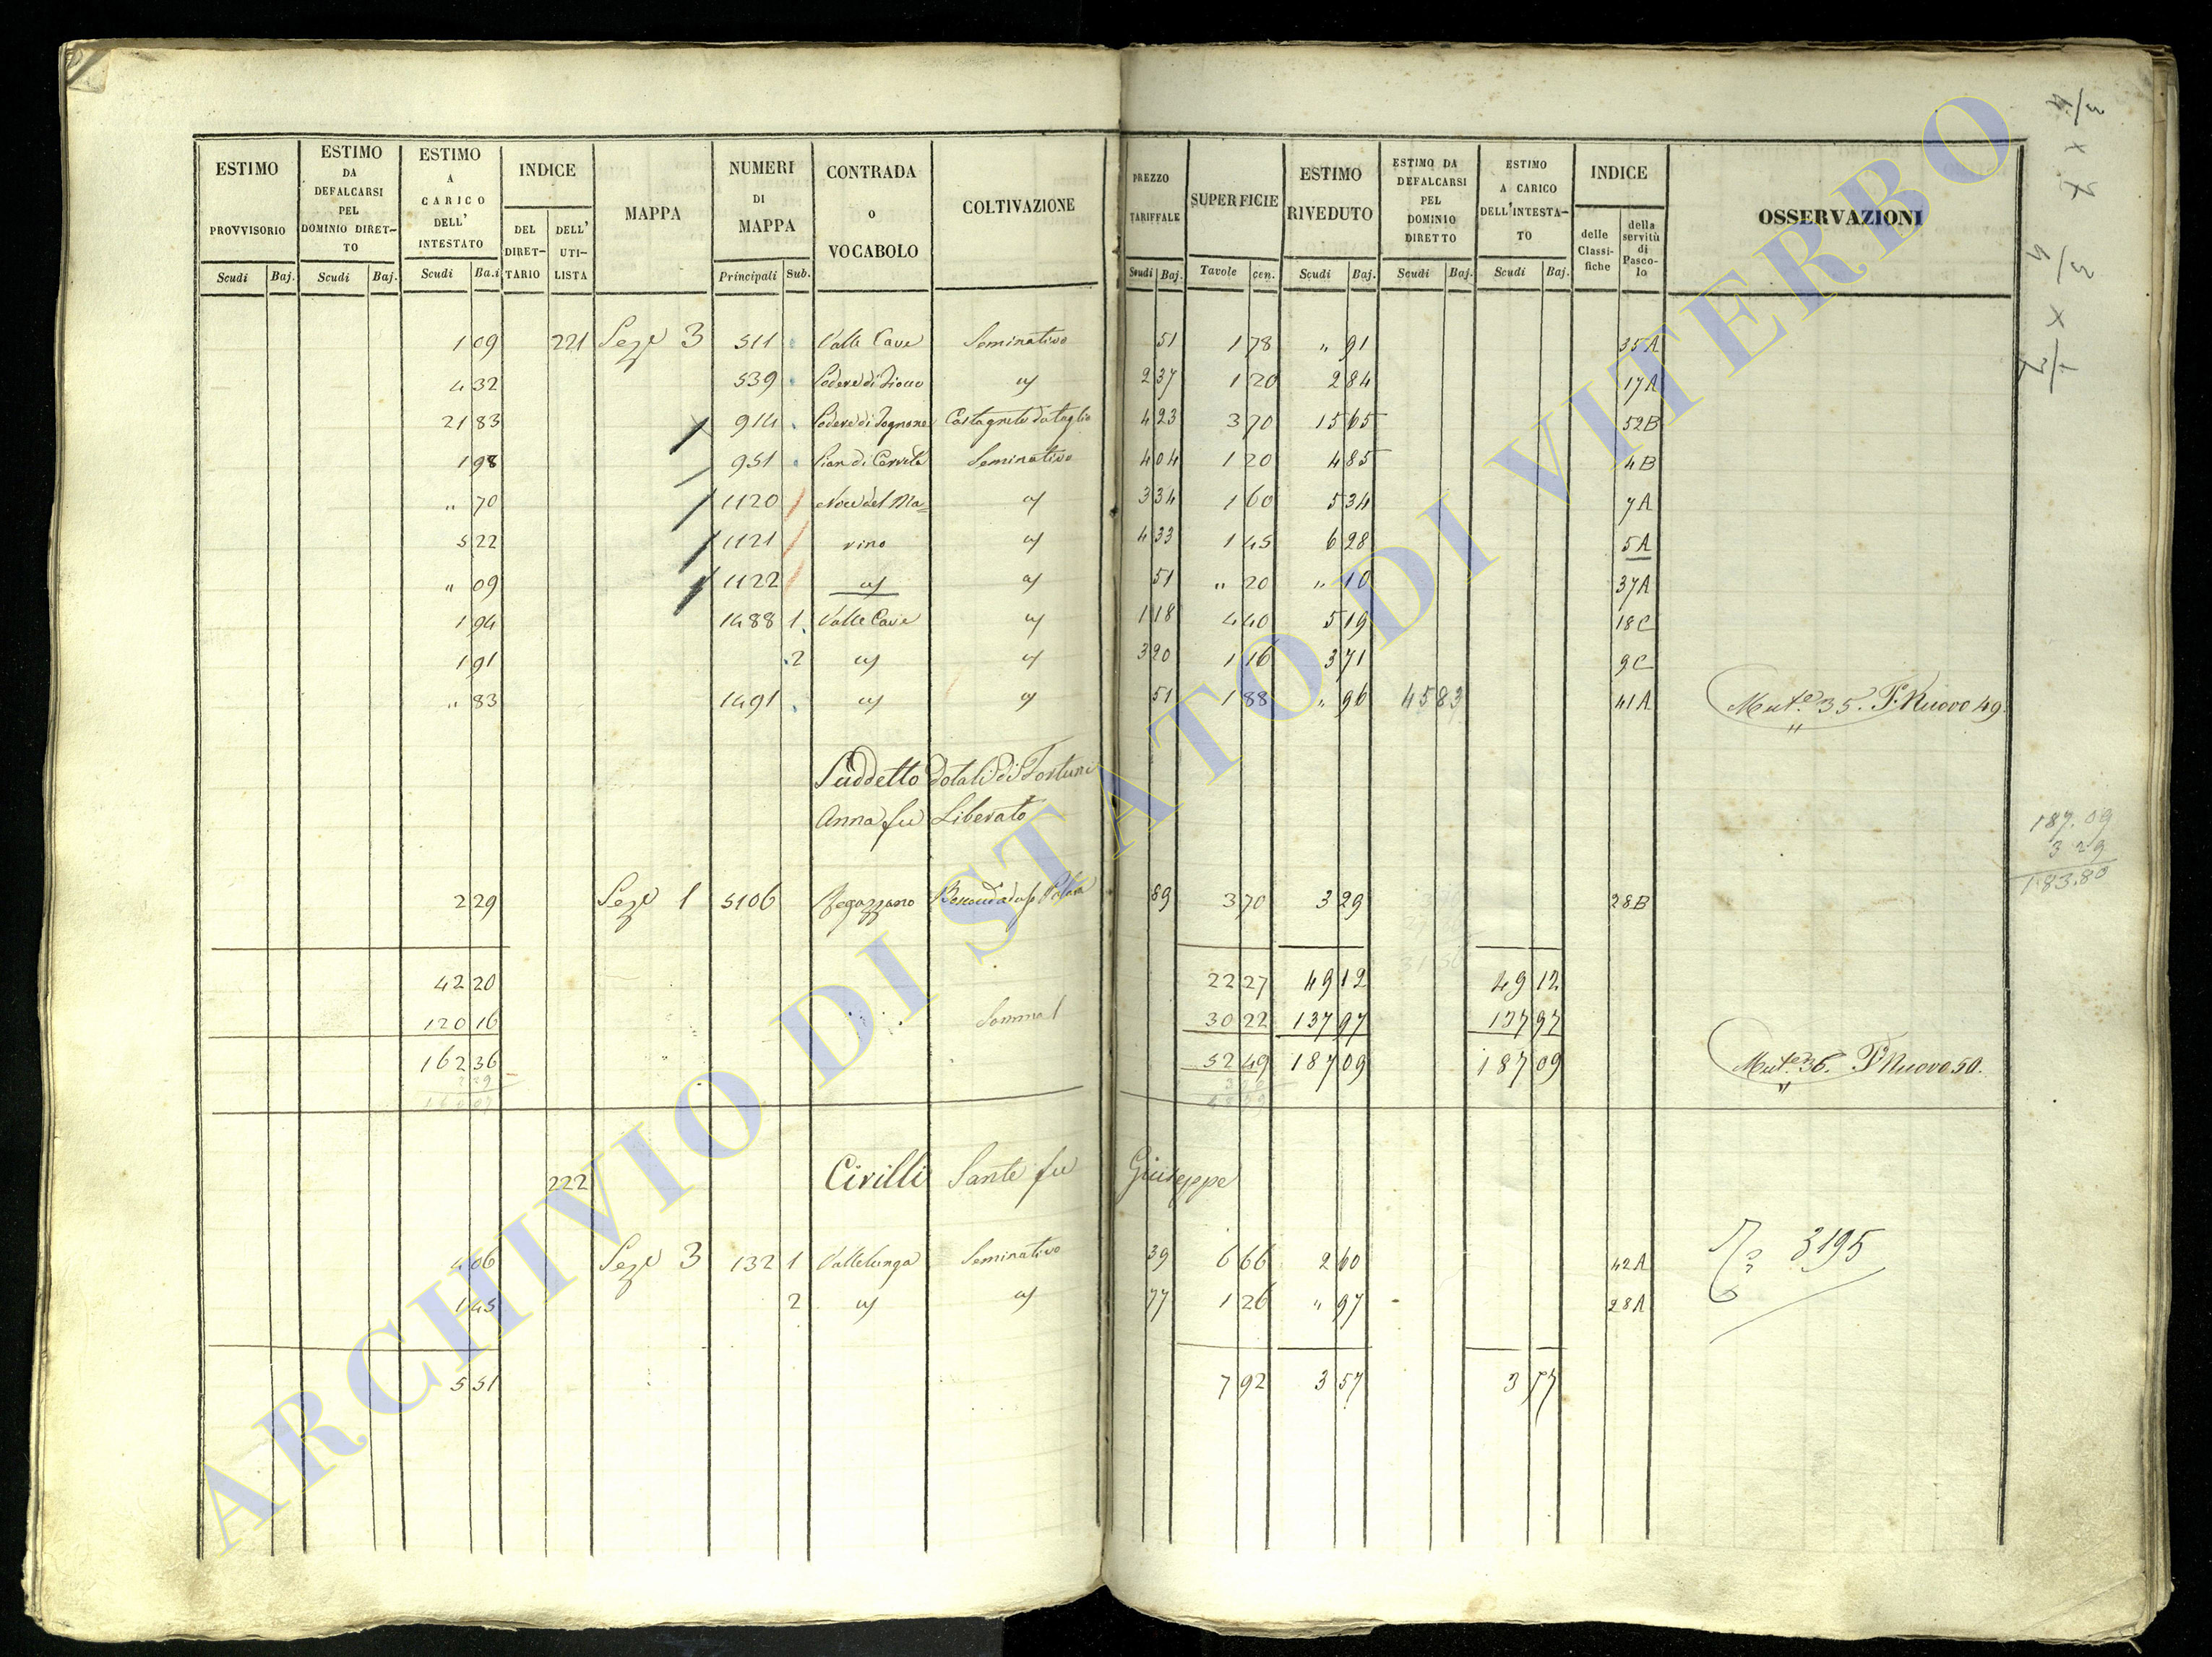 ESTIMO PROVVISORIO Scudi Baj.
ESTIMO DA DEFALCARSI PEL DOMINIO DIRET-TO Scudi Baj.
ESTIMO A CARICO DELL' INTESTATO Scudi Ba.i
INDICE DEL DIRET-TARIO DELL' UTI-LISTA
MAPPA
NUMERI DI MAPPA Principali Sub.
CONTRADA O VOCABOLO
COLTIVAZIONE
PREZZO TARIFFALE Scudi Baj.
SUPERFICIE Tavole cen.
ESTIMO RIVEDUTO Scudi Baj.
ESTIMO DA DEFALCARSI PEL DOMINIO DIRETTO Scudi Baj.
ESTIMO A CARICO DELL'INTESTA-TO Scudi Baj.
INDICE delle Classi-fiche della servitù di Pasco-lo
OSSERVAZIONI
1 09 221 Sez.e 3 511 Valle Cave Seminativo 51 1 78 " 91 35A
4 32 539 Podere di 2 37 1 20 2 84 17A
21 83 914 Podere di Castagneto da taglio 4 23 3 70 15 65 52B
1 98 951 Pian di Seminativo 4 04 1 20 4 85 4B
" 70 1120 Noce del Ma= 3 34 1 60 5 34 7A
5 22 1121 rino 4 33 1 45 6 28 5A
" 09 1122 51 " 20 " 10 37A
1 94 1488 1 Valle Cave 1 18 4 40 5 19 18C
1 91 2 3 20 1 16 3 71 9C
" 83 1491 51 1 88 " 96 45 83 41A Mut.e 35. P. Nuovo 49.
Suddetto dotali di Fortuni
Anna fu Liberato
2 29 Sez.e 1 5106 89 3 70 3 29 28B
42 20 22 27 49 12 49 12
120 16 Somma 30 22 137 97 137 97
162 36 52 49 187 09 187 09 Mut.e 36. P. Nuovo 50.
187.09
3 29
183.80
222 Cirilli Sante fu Giuseppe
4 06 Sez.e 3 132 1 Vallelunga Seminativo 39 6 66 2 60 42A 3195
1 45 2 77 1 26 " 97 28A
5 51 7 92 3 57 3 57
ARCHIVIO DI STATO DI VITERBO